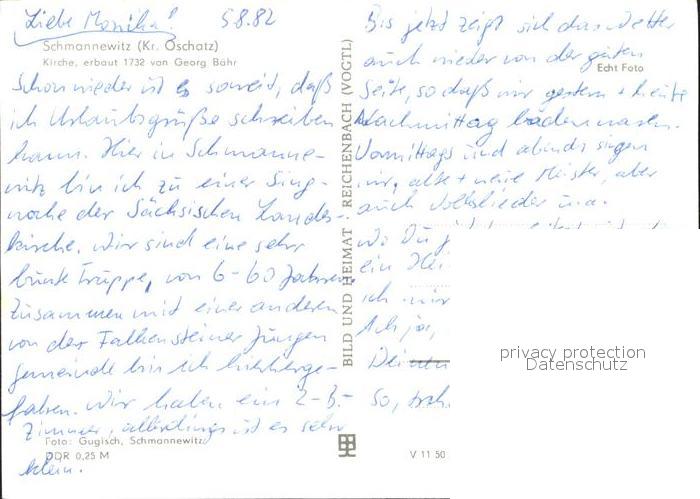 Liebe Monika! 5.8.82
Schmannewitz (Kr. Oschatz)
Kirche, erbaut 1732 von Georg Bähr
Schon wieder ist es soweit, daß
ich Urlaubsgrüße schreiben
kann. Hier in Schmanne-
witz bin ich zu einer Sing-
woche der Sächsischen Landes-
kirche. Wir sind eine sehr
bunte Truppe, von 6-60 Jahren.
Zusammen mit einer anderen
von der Falkensteiner Jungen
gemeinde bin ich hierherge-
fahren. Wir haben ein 2-B.-
Zimmer, allerdings ist es sehr
klein.
Foto: Gugisch, Schmannewitz
DDR 0,25 M
BILD UND HEIMAT REICHENBACH (VOGTL)
Bis jetzt zeigt sich das Wetter
auch wieder von der guten
Echt Foto
Seite, so daß wir gestern + heute
Nachmittag baden waren.
Vormittags und abends singen
wir, alte + neue Meister, aber
auch Volkslieder u.a.
Wo Du
ein
ich
Ach ja,
So,
V 11 50
privacy protection
Datenschutz